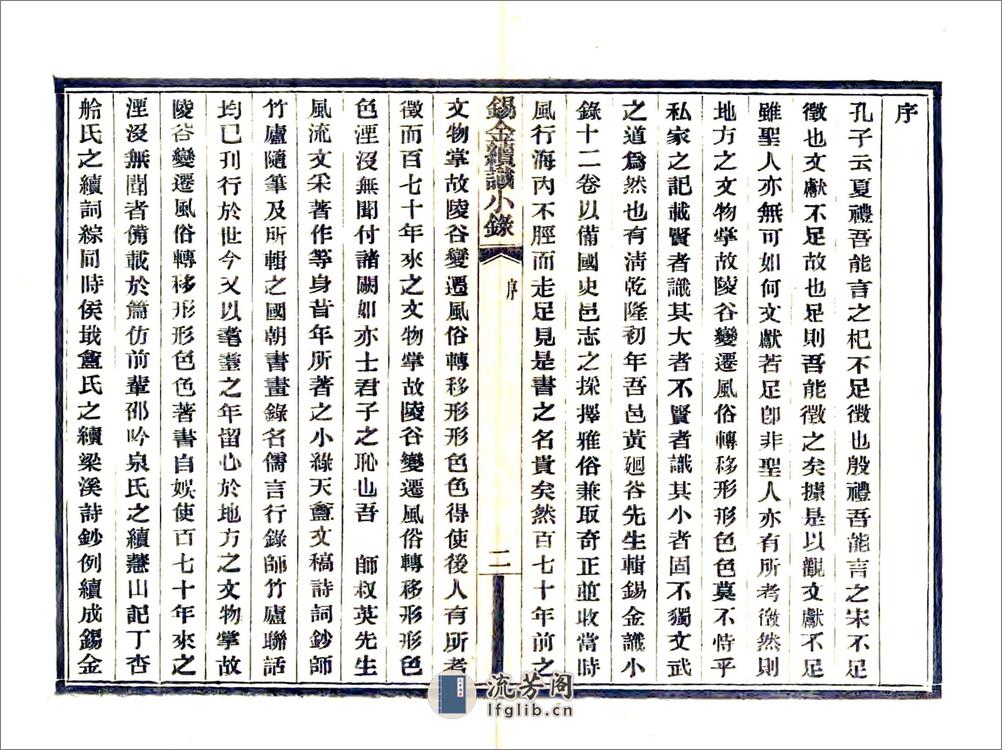 序
孔子云夏禮吾能言之杞不足徵也殷禮吾能言之宋不足
徵也文獻不足故也足則吾能徵之矣據是以觀文獻不足
雖聖人亦無可如何文獻若足卽非聖人亦有所考徵然則
地方之文物掌故陵谷變遷風俗轉移形形色色莫不恃乎
私家之記載賢者識其大者不賢者識其小者固不獨文武
之道爲然也有淸乾隆初年吾邑黃廻谷先生輯錫金識小
錄十二卷以備國史邑志之採擇雅俗兼取奇正並收當時
風行海內不脛而走足見是書之名貴矣然百七十年前之
錫金續識小錄
序
二
文物掌故陵谷變遷風俗轉移形形色色得使後人有所考
徵而百七十年來之文物掌故陵谷變遷風俗轉移形形色
色湮沒無聞付諸闕如亦士君子之恥也吾 師叔英先生
風流文采著作等身昔年所著之小綠天盦文稿詩詞鈔師
竹廬隨筆及所輯之國朝書畫錄名儒言行錄師竹廬聯話
均已刊行於世今又以耄耋之年留心於地方之文物掌故
陵谷變遷風俗轉移形形色色著書自娛使百七十年來之
湮沒無聞者備載於篇仿前輩邵吟泉氏之續慧山記丁杏
舲氏之續詞綜同時侯戢盦氏之續梁溪詩鈔例續成錫金
流芳阁
lfglib.cn